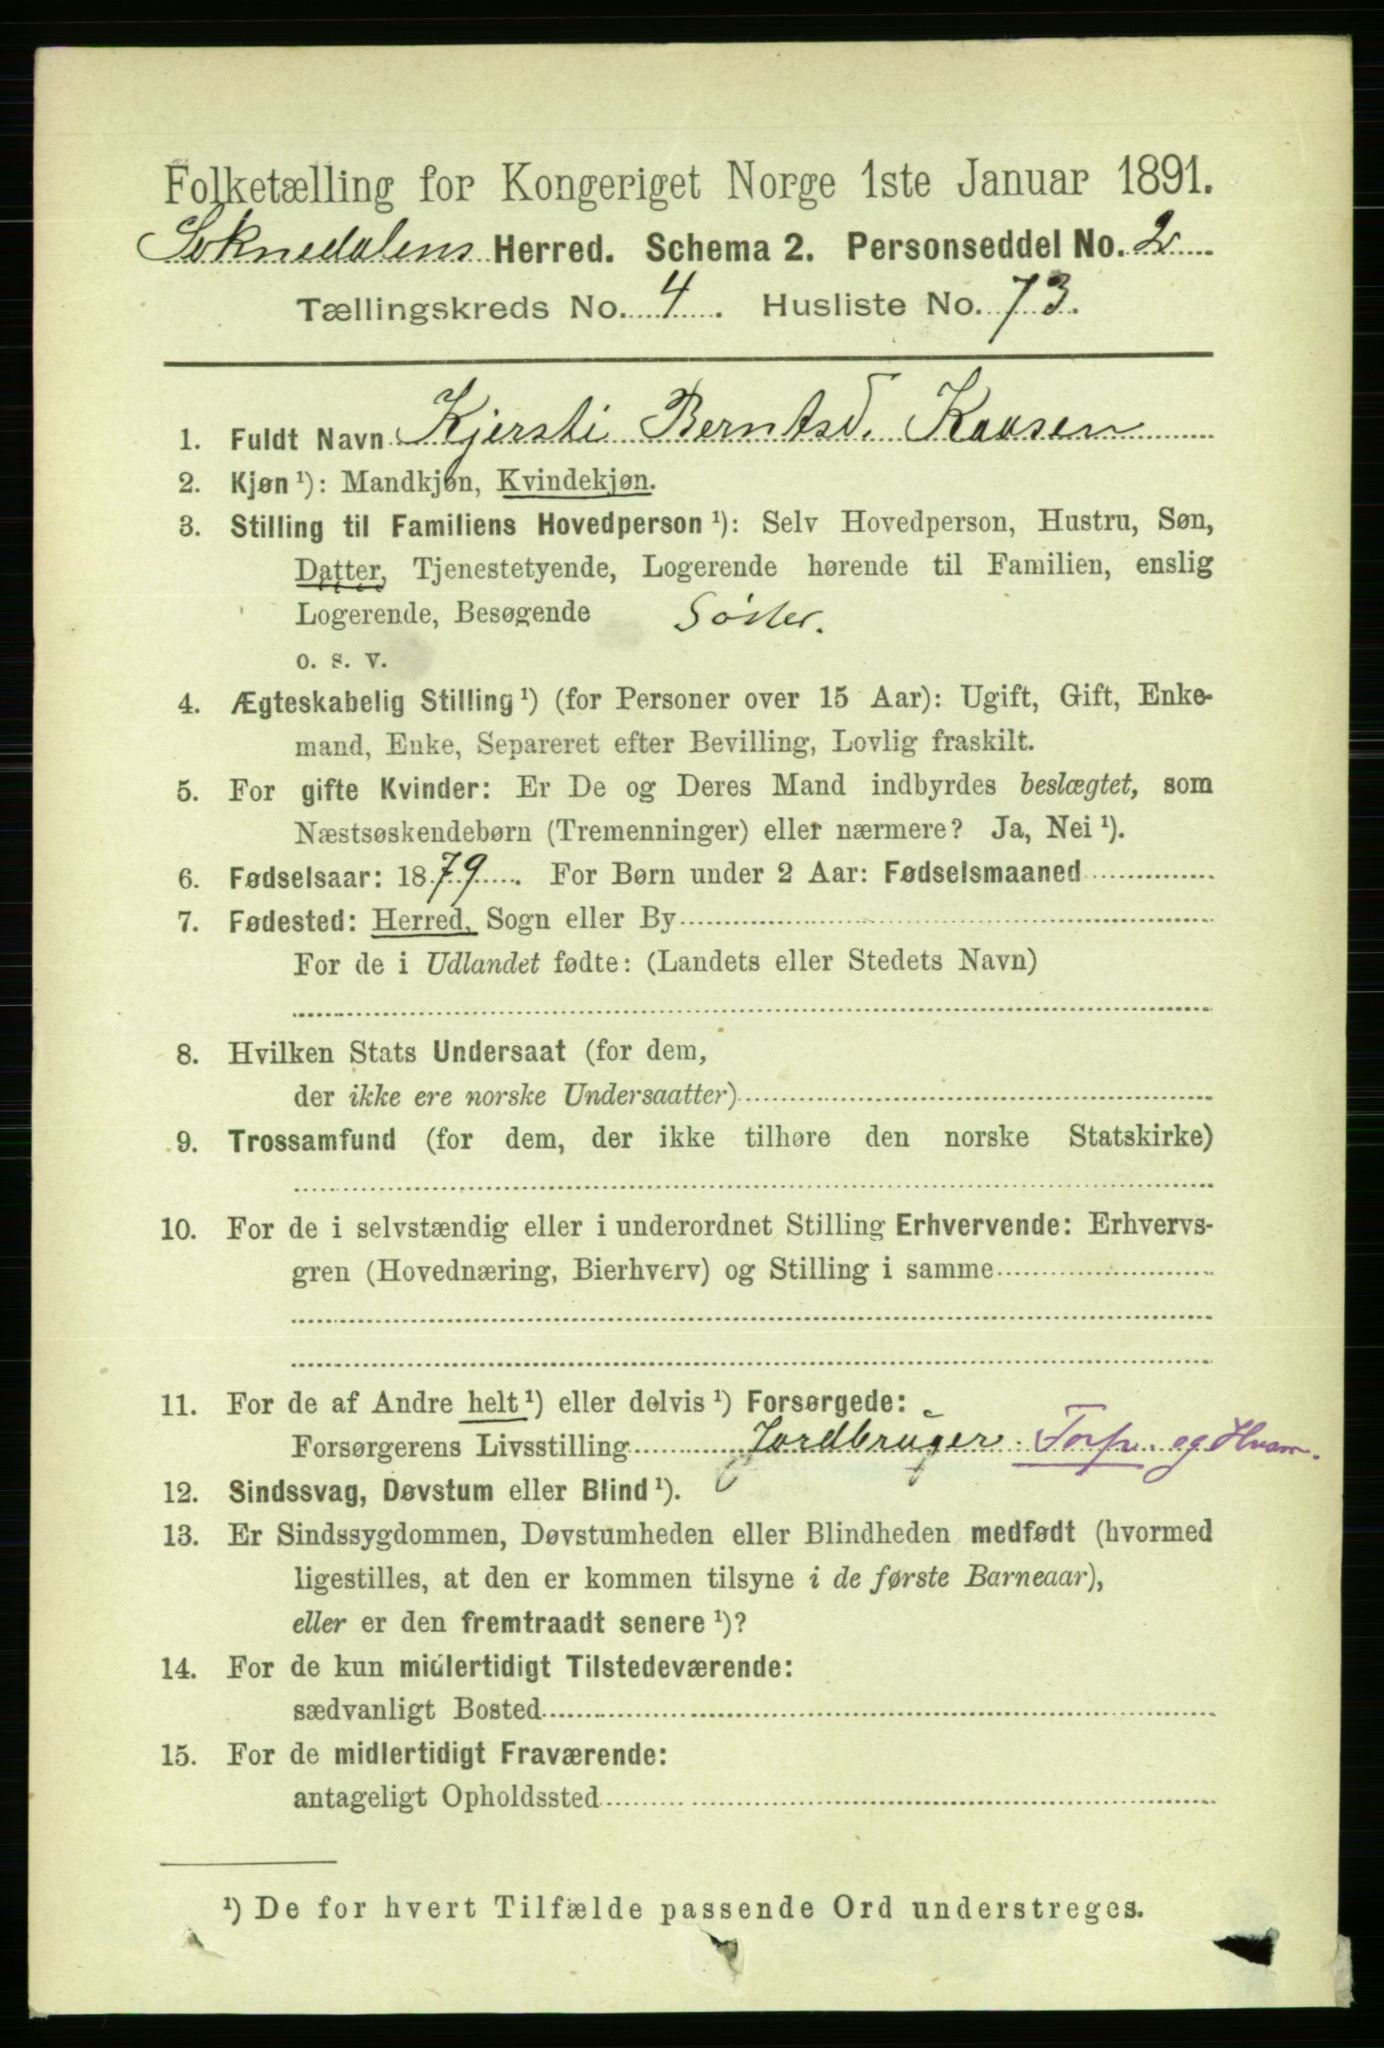 Folketælling for Kongeriget Norge 1ste Januar 1891.
Soknedalens Herred. Schema 2. Personseddel No. 2
Tællingskreds No. 4. Husliste No. 73.
1. Fuldt Navn Kjersti Berntsd. Kaasen
2. Kjøn¹): Mandkjøn, Kvindekjøn.
3. Stilling til Familiens Hovedperson¹): Selv Hovedperson, Hustru, Søn,
Datter, Tjenestetyende, Logerende hørende til Familien, enslig
Logerende, Besøgende Søster.
o. s. v.
4. Ægteskabelig Stilling¹) (for Personer over 15 Aar): Ugift, Gift, Enke-
mand, Enke, Separeret efter Bevilling, Lovlig fraskilt.
5. For gifte Kvinder: Er De og Deres Mand indbyrdes beslægtet, som
Næstsøskendebørn (Tremenninger) eller nærmere? Ja, Nei¹).
6. Fødselsaar: 1879. For Børn under 2 Aar: Fødselsmaaned
7. Fødested: Herred, Sogn eller By
For de i Udlandet fødte: (Landets eller Stedets Navn)
8. Hvilken Stats Undersaat (for dem,
der ikke ere norske Undersaatter)
9. Trossamfund (for dem, der ikke tilhøre den norske Statskirke)
10. For de i selvstændig eller i underordnet Stilling Erhvervende: Erhvervs-
gren (Hovednæring, Bierhverv) og Stilling i samme
11. For de af Andre helt¹) eller delvis¹) Forsørgede:
Forsørgerens Livsstilling Jordbruger Forpr. og
12. Sindssvag, Døvstum eller Blind¹).
13. Er Sindssygdommen, Døvstumheden eller Blindheden medfødt (hvormed
ligestilles, at den er kommen tilsyne i de første Barneaar),
eller er den fremtraadt senere¹)?
14. For de kun midlertidigt Tilstedeværende:
sædvanligt Bosted
15. For de midlertidigt Fraværende:
antageligt Opholdssted
¹) De for hvert Tilfælde passende Ord understreges.